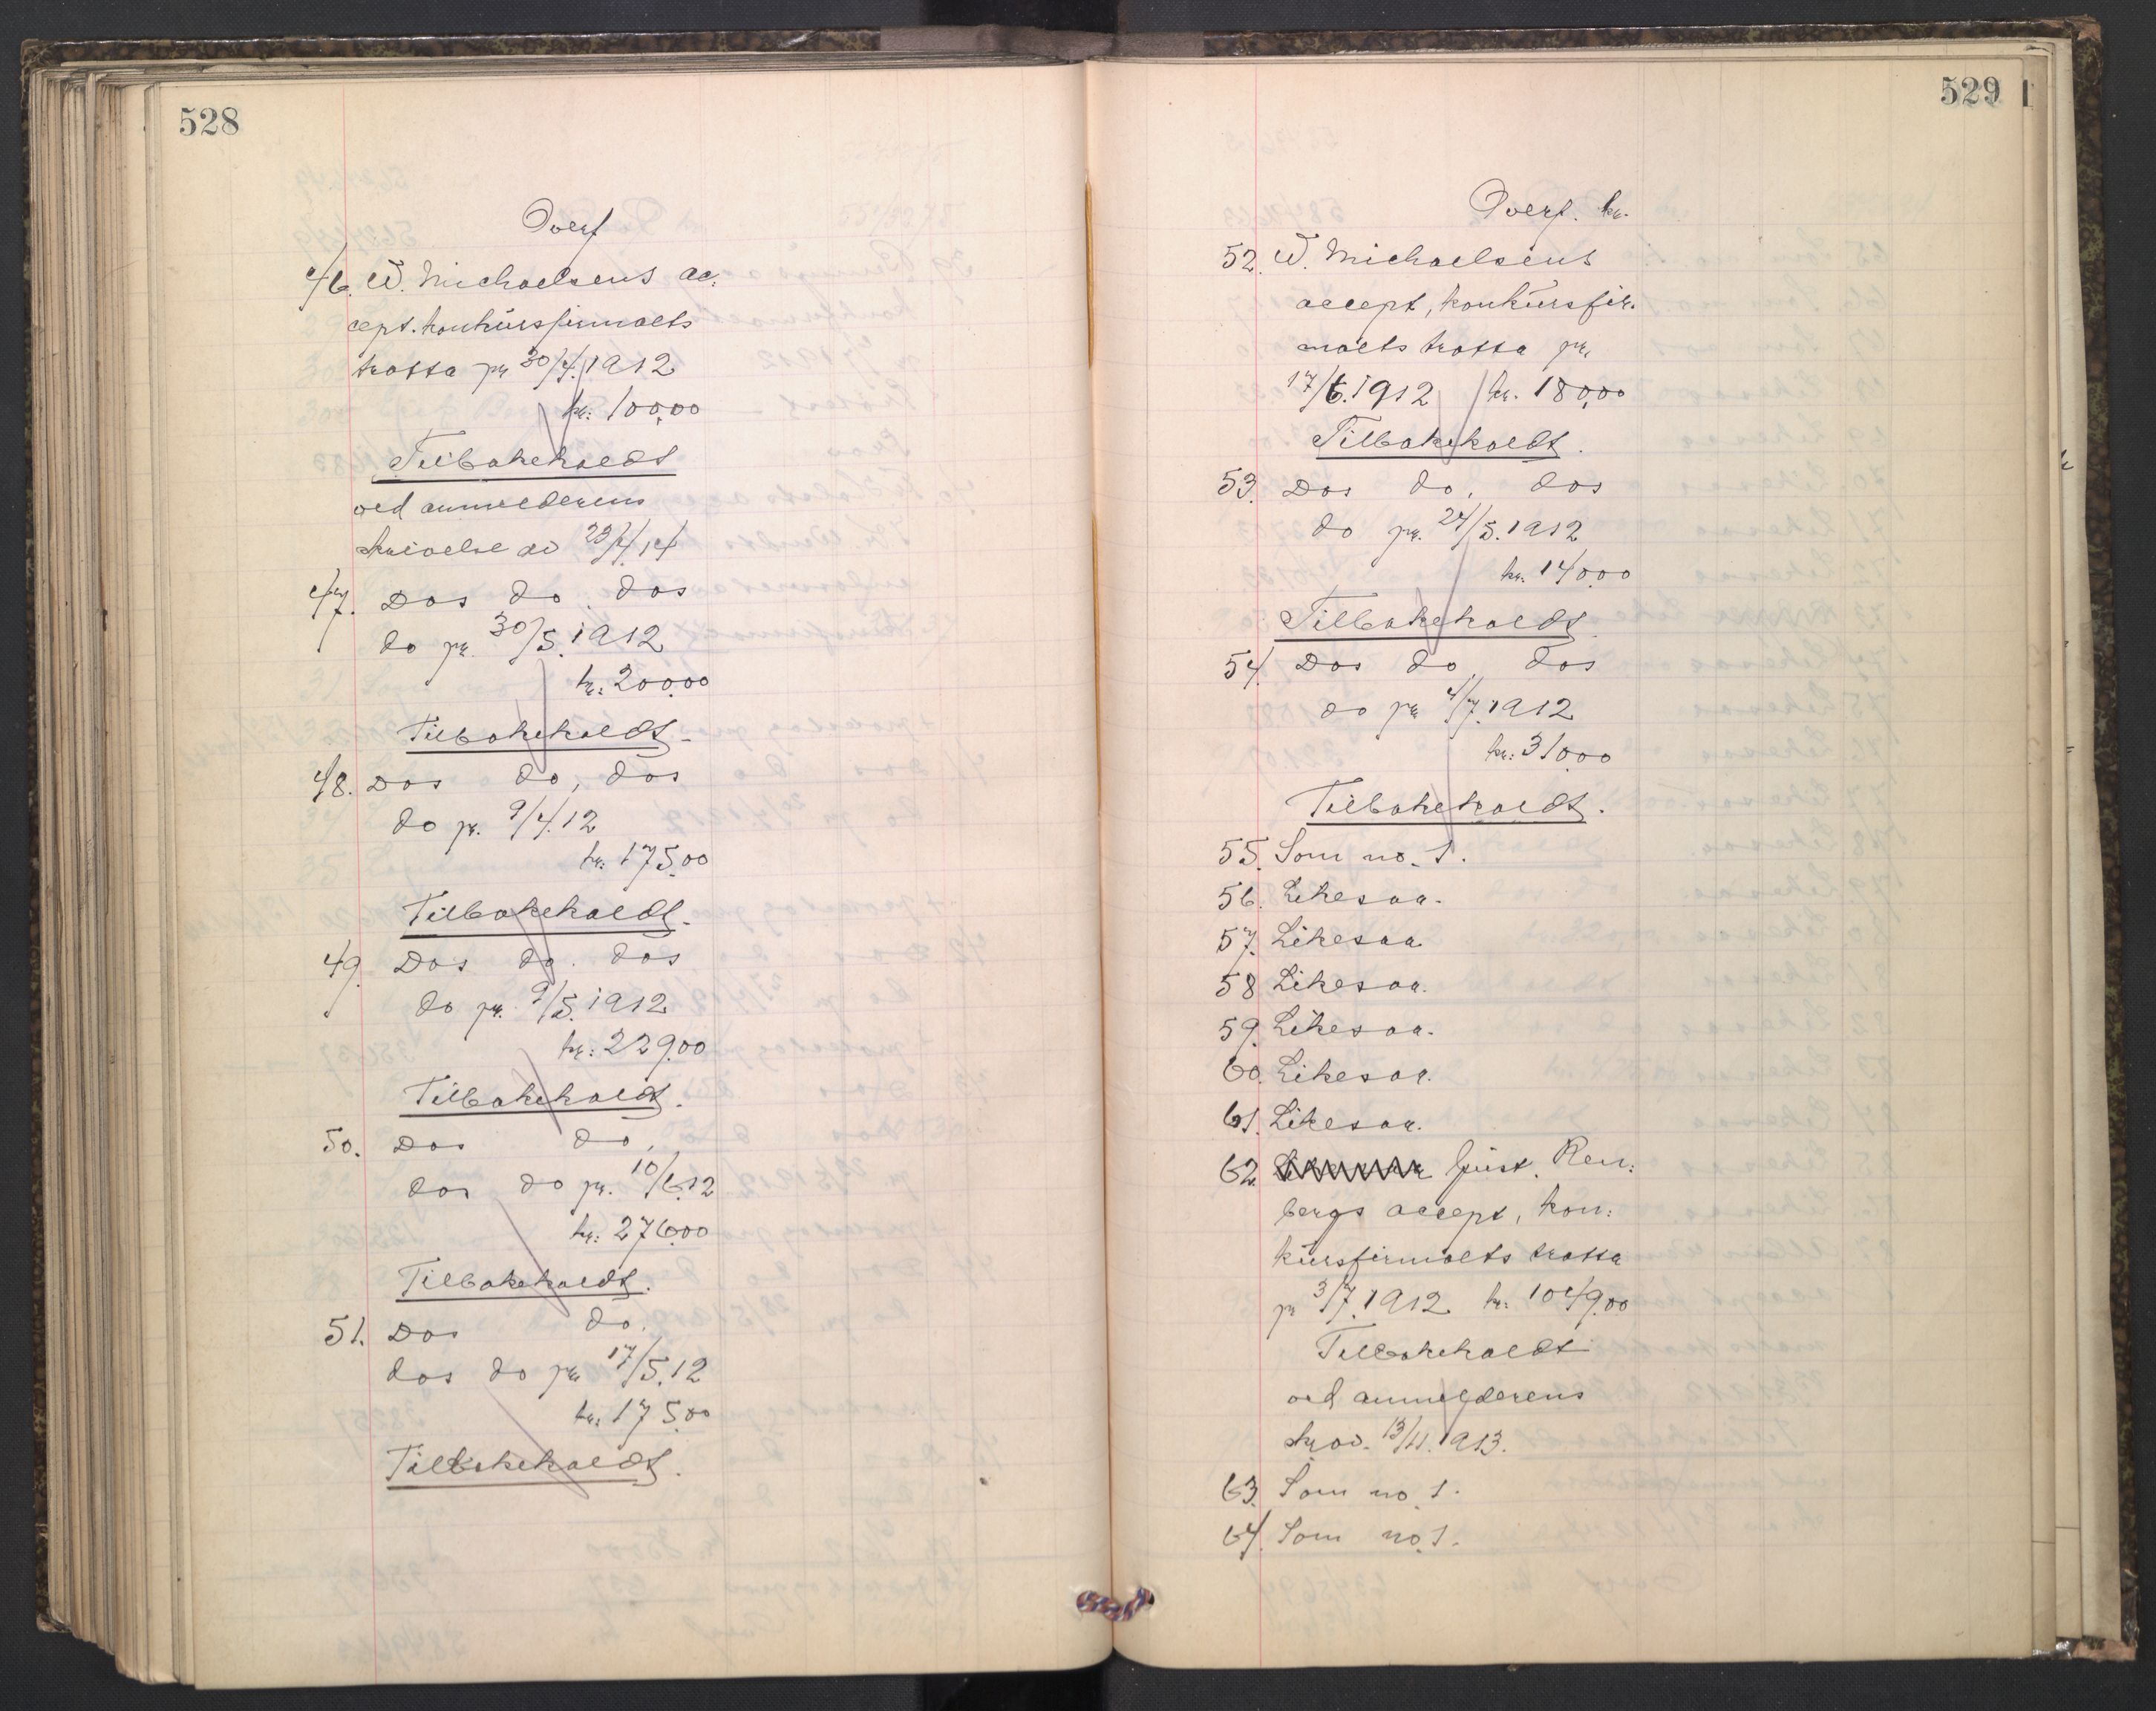 528
Overf
46. W. Michaelsens ac:
cept. konkursfirmaets
tratta pr 30/4. 1912
kr: 100,00
Tilbakekaldt
ved anmelderens
skrivelse av 23/4.14
47. Dos do. dos
do pr. 30/5. 1912
kr: 200.00
Tilbakekaldt.
48. Dos do, dos
do pr. 9/4.12
kr: 175.00
Tilbakekaldt.
49. Dos do. dos
do pr. 9/5. 1912
kr: 229.00
Tilbakekaldt.
50. Dos do,
dos do pr. 10/6.12
kr: 276.00
Tilbakekaldt.
51. Dos do.
dos do pr 17/5.12
kr: 175.00
Tilbakekaldt.
529
Overf. kr.
52. W. Michaelsens
accept, konkursfir:
maets tratta pr.
17/6. 1912 kr. 180,00
Tilbakekaldt.
53. Dos do, dos
do pr. 24/5. 1912
kr. 140.00
Tilbakekaldt.
54. Dos do, dos
do pr 4/7. 1912
kr: 310.00
Tilbakekaldt.
55. Som no. 1.
56. Likesaa.
57. Likesaa
58 Likesaa.
59. Likesaa.
60. Likesaa.
61. Likesaa.
62. Just. Ren:
bergs accept, kon:
kursfirmaets tratta
pr 3/7. 1912 kr: 1049.00
Tilbakekaldt
ved anmelderens
skriv. 13/11. 1913.
63. Som no. 1.
64. Som no. 1.